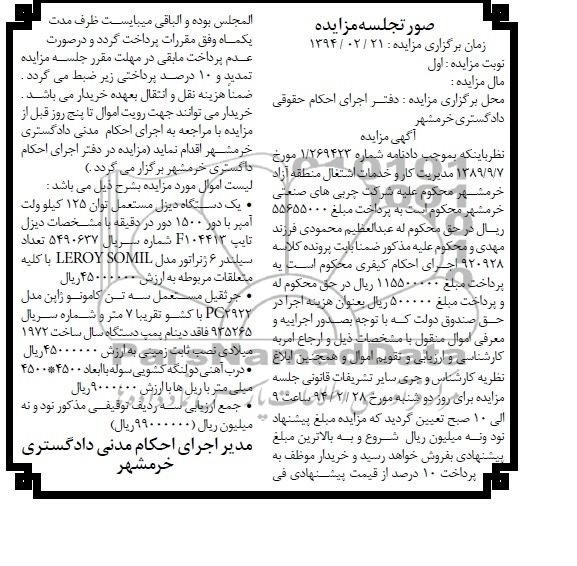 صورتجلسه مزایده
زمان برگزاری مزایده : ۲۱ / ۰۲ / ۱۳۹۴
نوبت مزایده : اول
مال مزایده :
محل برگزاری مزایده : دفتر اجرای احکام حقوقی
دادگستری خرمشهر
آگهی مزایده
نظرباینکه بموجب دادنامه شماره ۱/۲۶۹۴۲۳ مورخ
۱۳۸۹/۹/۷ مدیریت کار و خدمات اشتغال منطقه آزاد
خرمشهر محکوم علیه شرکت چربی های صنعتی
خرمشهر محکوم است به پرداخت مبلغ ۵۵۶۵۵۰۰۰
ریال در حق محکوم له عبدالعظیم محمودی فرزند
مهدی و محکوم علیه مذکور ضمنا بابت پرونده کلاسه
۹۲۰۹۲۸ اجرای احکام کیفری محکوم است به
پرداخت مبلغ ۱۱۵۵۰۰۰۰۰ ریال در حق محکوم له
و پرداخت مبلغ ۵۰۰۰۰۰ ریال بعنوان هزینه اجرا در
حق صندوق دولت که با توجه بصدور اجراییه و
معرفی اموال منقول با مشخصات ذیل و ارجاع امر به
کارشناسی و ارزیابی و تقویم اموال و همچنین ابلاغ
نظریه کارشناس و جری سایر تشریفات قانونی جلسه
مزایده برای روز دو شنبه مورخ ۲۸ / ۲ / ۹۴ ساعت ۹
الی ۱۰ صبح تعیین گردید که مزایده مبلغ پیشنهاد
نود و نه میلیون ریال شروع و به بالاترین مبلغ
پیشنهادی بفروش خواهد رسید و خریدار موظف به
پرداخت ۱۰ درصد از قیمت پیشنهادی فی
المجلس بوده و الباقی میبایست ظرف مدت
یکماه وفق مقررات پرداخت گردد و درصورت
عدم پرداخت مابقی در مهلت مقرر جلسه مزایده
تمدید و ۱۰ درصد پرداختی زیر ضبط می گردد .
ضمنا هزینه نقل و انتقال بعهده خریدار می باشد .
خریدار می توانند جهت رویت اموال تا پنج روز قبل از
مزایده با مراجعه به اجرای احکام مدنی دادگستری
خرمشهر اقدام نماید (مزایده در دفتر اجرای احکام
داگستری خرمشهر برگزار می گردد .)
لیست اموال مورد مزایده بشرح ذیل می باشد :
• یک دستگاه دیزل مستعمل توان ۱۲۵ کیلو ولت
آمپر با دور ۱۵۰۰ دور در دقیقه با مشخصات دیزل
تایپ F۱۰۴۴۱۳ شماره سریال ۵۴۹۰۶۳۷ تعداد
سیلندر ۶ ژنراتور مدل LEROY SOMIL با کلیه
متعلقات مربوطه به ارزش ۴۵۰۰۰۰۰۰ ریال
• جرثقیل مستعمل سه تن کاموتو ژاپن مدل
PC۲۹۲۲ با کشو تقریبا ۷ متر و شماره سریال
۹۳۵۲۶۵ فاقد دینام پمپ دستگاه سال ساخت ۱۹۷۲
میلادی نصب ثابت زمینی به ارزش ۴۵۰۰۰۰۰۰ ریال
• درب آهنی دولنگه کشویی سوله با ابعاد ۴۵۰۰*۴۵۰۰
میلی متر با ریل ها با ارزش ۹۰۰۰۰۰۰ ریال
• جمع ارزیابی سه ردیف توقیفی مذکور نود و نه
میلیون ریال (۹۹۰۰۰۰۰۰ ریال)
مدیر اجرای احکام مدنی دادگستری
خرمشهر